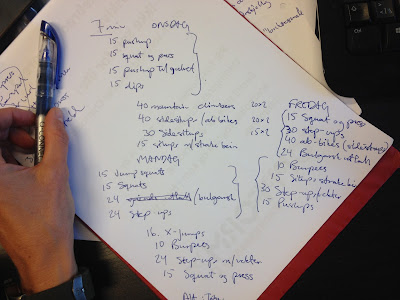 7 min ONSDAG
15 pushup
15 squat og press
15 pushup til
15 dips
40 mountain climbers 20x2
40 sidesteps/ab bikes 20x2
30 Sidesitups 15x2
15 situps m/strake bein
MANDAG
15 Jump squats
15 Squats
24 /bulgarsk
24 Step-ups
16. X-jumps
10 Burpees
24 Step-ups m/vekter
15 Squat og press
FREDAG
15 Squat og press
30 step-ups
40 ab-bikes (sidesteps)
24 Bulgarsk utfall
10 Burpees
15 Situps strake bein
30 Step-ups/vekter
15 Pushups